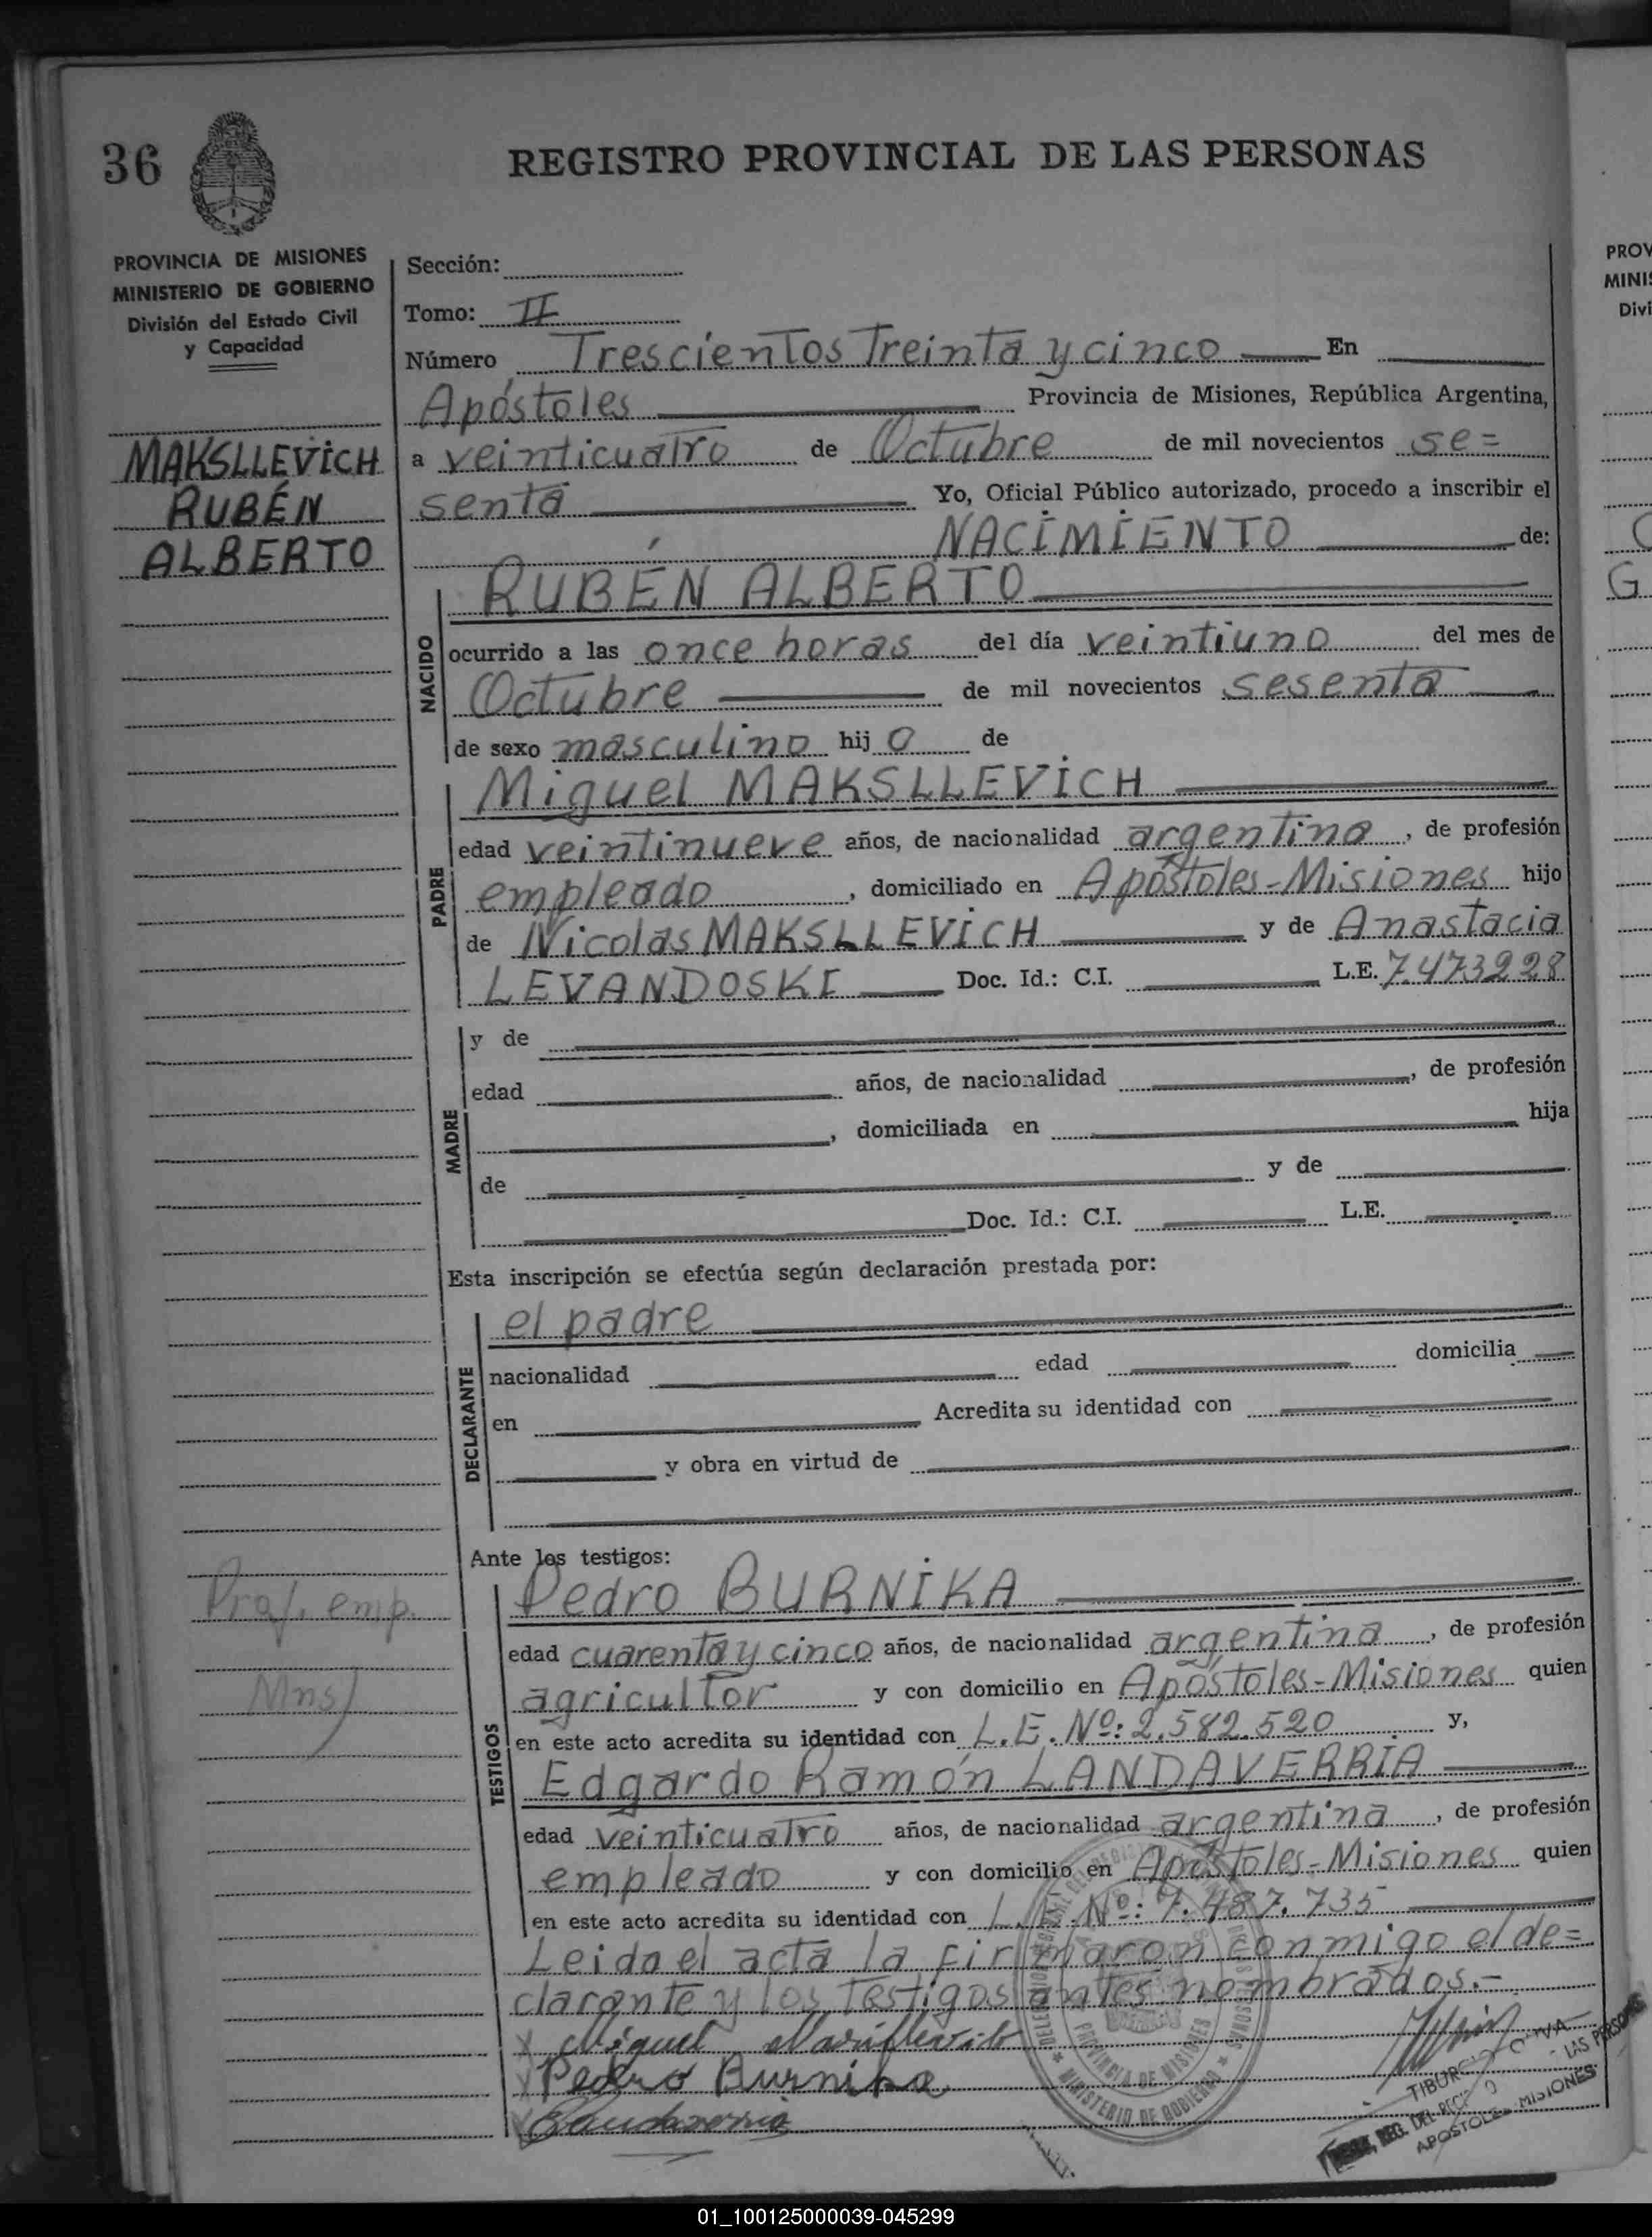 36
REGISTRO PROVINCIAL DE LAS PERSONAS
PROVINCIA DE MISIONES
MINISTERIO DE GOBIERNO
División del Estado Civil
y Capacidad
MAKSLLEVICH
RUBÉN
ALBERTO
Sección:
Tomo: II
Número Trescientos Treinta y cinco En
Apóstoles Provincia de Misiones, República Argentina,
a veinticuatro de Octubre de mil novecientos se=
senta Yo, Oficial Público autorizado, procedo a inscribir el
NACIMIENTO de:
NACIDO
RUBÉN ALBERTO
ocurrido a las once horas del día veintiuno del mes de
Octubre de mil novecientos sesenta
de sexo masculino hijo de
PADRE
Miguel MAKSLLEVICH
edad veintinueve años, de nacionalidad argentina, de profesión
empleado, domiciliado en Apóstoles-Misiones hijo
de Nicolas MAKSLLEVICH y de Anastacia
LEVANDOSKI Doc. Id.: C.I. L.E. 7.473228
MADRE
y de
edad años, de nacionalidad , de profesión
, domiciliada en hija
de y de
Doc. Id.: C.I. L.E.
Esta inscripción se efectúa según declaración prestada por:
DECLARANTE
el padre
nacionalidad edad domicilia
en Acredita su identidad con
y obra en virtud de
Ante los testigos:
Prof. emp.
Mns/
TESTIGOS
Pedro BURNIKA
edad cuarenta y cinco años, de nacionalidad argentina, de profesión
agricultor y con domicilio en Apóstoles-Misiones quien
en este acto acredita su identidad con L.E. Nº: 2.582.520 y,
Edgardo Ramón LANDAVERRIA
edad veinticuatro años, de nacionalidad argentina, de profesión
empleado y con domicilio en Apóstoles-Misiones quien
en este acto acredita su identidad con L.E. Nº: 7.487.735
Leida el acta la firmaron conmigo el de=
clarante y los Testigos antes nombrados.-
Miguel
Pedro Burnika
MINISTERIO DE GOBIERNO
PROVINCIA DE MISIONES
REG. DEL
LAS PERSONAS
APOSTOLES MISIONES
PROV
MINIS
Divi
G
01_100125000039-045299